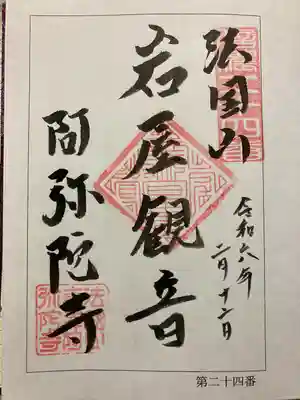 法国山
令和六年
二月十二日
岩屋観音
阿弥陀寺
第二十四番